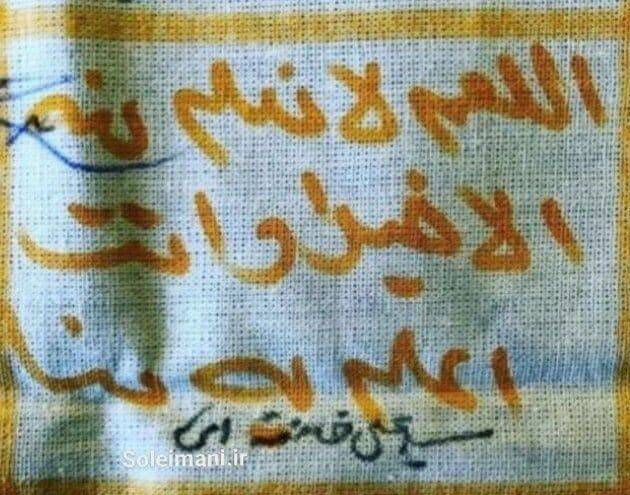 اللهم لا نعلم منه
الا خیراً و انت
اعلم به منا
سیدعلی خامنه ای
Soleimani.ir